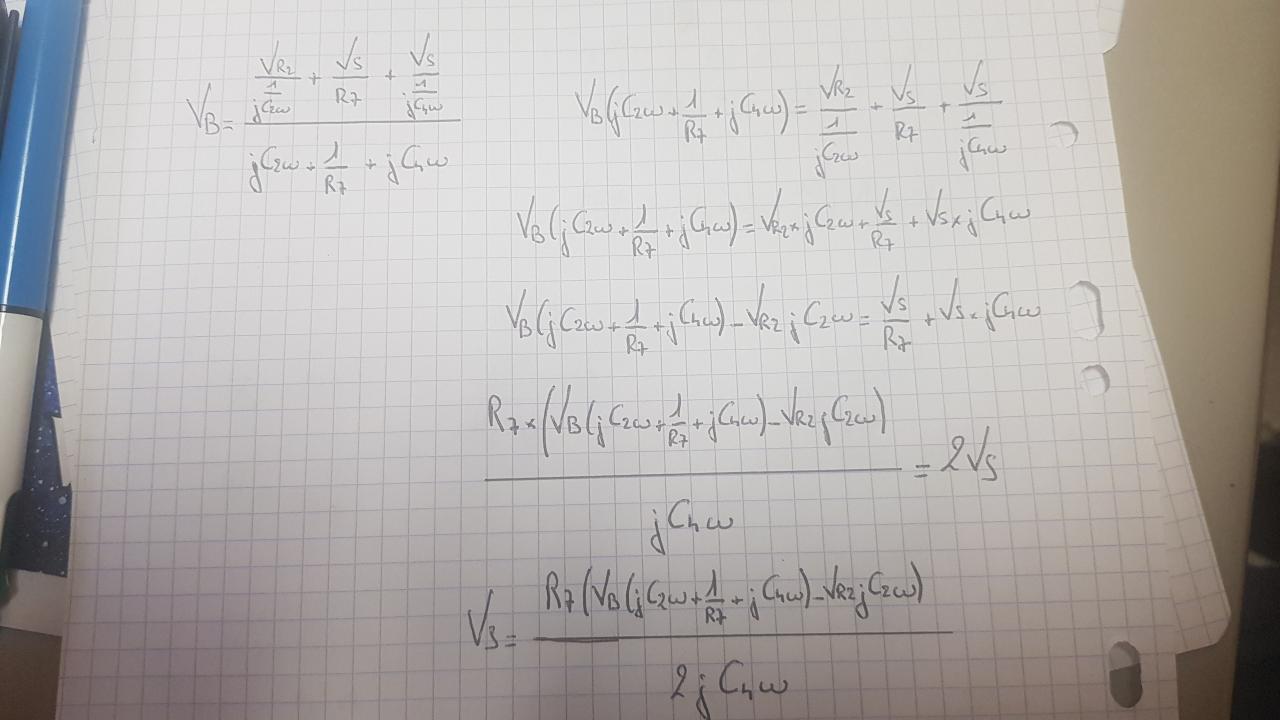 V_B = (V_R2/(1/jC2ω) + V_S/R7 + V_S/(1/jC4ω)) / (jC2ω + 1/R7 + jC4ω)
V_B(jC2ω + 1/R7 + jC4ω) = V_R2/(1/jC2ω) + V_S/R7 + V_S/(1/jC4ω)
V_B(jC2ω + 1/R7 + jC4ω) = V_R2 × jC2ω + V_S/R7 + V_S × jC4ω
V_B(jC2ω + 1/R7 + jC4ω) - V_R2 jC2ω = V_S/R7 + V_S × jC4ω
R7 × (V_B(jC2ω + 1/R7 + jC4ω) - V_R2 jC2ω) / jC4ω = 2V_S
V_S = R7(V_B(jC2ω + 1/R7 + jC4ω) - V_R2 jC2ω) / 2jC4ω